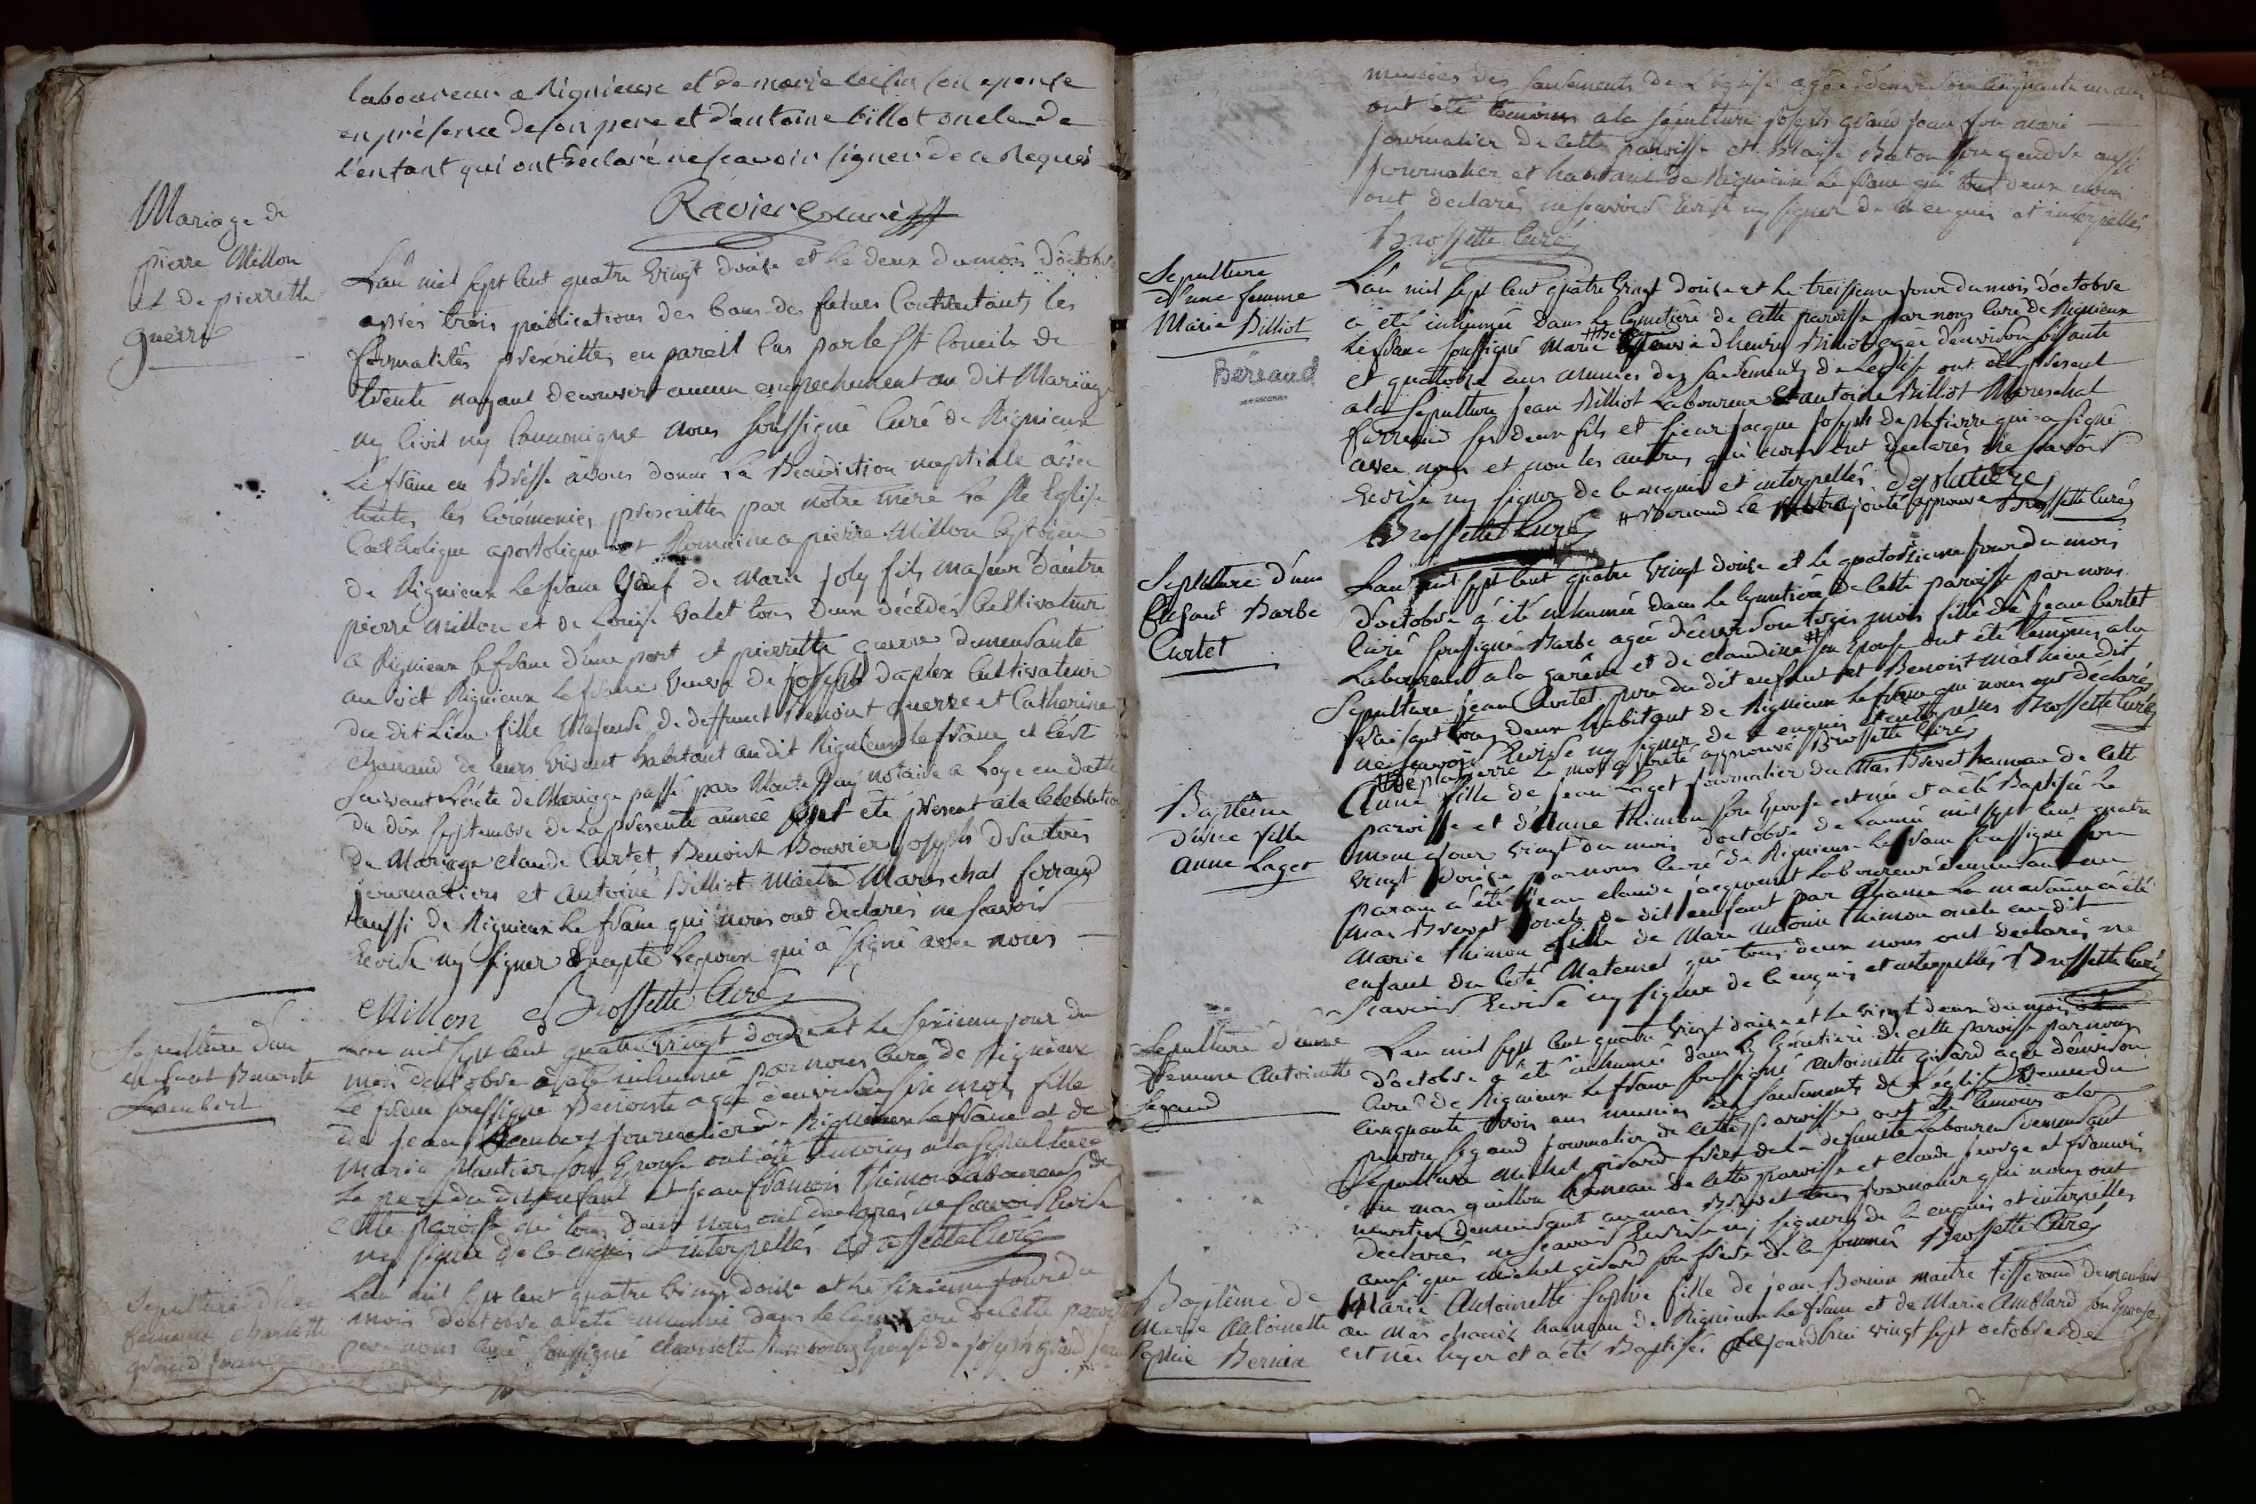 laboureur a Rignieux et de marie son epouse
en présence de son pere et d'antoine billot oncle de
l'enfant qui ont déclaré ne scavoir signer de ce Requis
Ravier curé
Mariage de
pierre Millon
et de pierrette
guerre
L'an mil sept cent quatre vingt douze et le deux du mois d'octobre
après trois publications des bans des futurs Contractants les
formalités prescrittes en pareil cas par le St Concile de
trente n'ayant decouvert aucun empechement au dit Mariage
ny Civil ny Cannonique nous soussigné Curé de Rignieux
Le franc en Bresse avons donné La Benediction nuptiale avec
toutes les Cérémonies prescrittes par notre mère La Ste Eglise
Catholique apostolique et Romaine a pierre Millon Cytoyen
de Rignieux le franc veuf de Marie joly fils majeur d'autre
pierre Millon et de Louise Valet tous deux décédés Cultivateur
a Rignieux le franc d'une part et pierrette guerre demeurante
au dict Rignieux le franc veuve de joseph daplex Cultivateur
du dit Lieu fille Majeure de deffunct Benoist guerre et Catherine
Chanaud de leurs vivant habitant au dit Rignieux le franc et c'est
Suivant L'acte de Mariage passé par notaire a Loye en datte
du dix septembre de La presente année ont été present a la Celebration
du Mariage claude Curtet, Benoist Bouvier joseph
journaliers et Antoine Billiot Maitre Mareschal ferrand
aussi de Rignieux Le franc qui nous ont declarés ne scavoir
Ecrire ny signer Excepté L'epoux qui a signé avec nous
Millon Brossette Curé
Sepulture d'un
enfant Benoiste
Lambert
L'an mil sept cent quatre vingt douze et le sixieme jour du
mois d'octobre a été inhumée par nous Curé de Rignieux
Le franc soussigné Benoiste agée d'environ six mois fille
de jean Lambert journalier a Rignieux Le franc et de
Marie plantier son Epouse ont été temoins a la sepulture
Le pere du dit enfant et jean francois thimon Laboureur de
cette paroisse qui tous deux nous ont declarés ne scavoir Ecrire
ny signer de ce enquis et interpellés Brossette Curé
Sepulture d'une
femme
grand jean
L'an mil sept cent quatre vingt douze et le sixieme jour du
mois d'octobre a été inhumée dans le Cymetiere de cette paroisse
par nous Curé soussigné Epouse de joseph grand jean
munies des sacrements de L'eglise agée d'environ cinquante un ans
ont été temoins a la sepulture joseph grand jean son mari
journalier de cette paroisse et Blaise Baton son gendre aussi
journalier et habitant de Rignieux Le franc qui tous deux nous
ont declarés ne scavoir Ecrire ny signer de ce enquis et interpellés
Brossette Curé
Sepulture
d'une femme
Marie Billiot
Béréaud
L'an mil sept cent quatre vingt douze et le treisieme jour du mois d'octobre
a été inhumée dans Le Cymetiere de cette paroisse par nous Curé de Rignieux
Le franc soussigné Marie veuve d'henri Billiot agée d'environ soixante
et quatorze ans munies des sacrements de L'eglise ont été present
a la Sepulture jean Billiot Laboureur et antoine Billiot Mareschal
ferrand ses deux fils et sieur jacque joseph Desplatiere qui a signé
avec nous et non les autres qui nous ont declarés ne scavoir
Ecrire ny signer de ce enquis et interpellés. Desplatière
Brossette Curé # Beréaud Le mot ajouté approuve Brossette Curé
Sepulture d'une
Enfant Barbe
Curtet
L'an mil sept cent quatre vingt douze et le quatorzieme jour du mois
d'octobre a été inhumée dans Le Cymetiere de cette paroisse par nous
Curé soussigné Barbe agée d'environ trois mois fille de jean Curtet
Laboureur a la garenne et de claudine # son Epouse ont été temoins a la
Sepulture jean Curtet pere du dit enfant et Benoist Mathieu dit
tous deux habitant de Rignieux Le franc qui nous ont déclarés
ne scavoir Ecrire ny signer de ce enquis et interpellés Brossette Curé
Le mot ajouté approuvé Brossette Curé
Baptême
d'une fille
anne Laget
Anne fille de jean Laget journalier du Mas Brevet hameau de cette
paroisse et d'anne thimon son Epouse est née et a été Baptisée Le
meme jour vingt du mois d'octobre de L'année mil sept cent quatre
vingt douze par nous Curé de Rignieux Le franc soussigné son
parain a été jean claude jacquemet Laboureur demeurant au
Mas Brevet oncle du dit enfant par La maraine a été
Marie thimon fille de Marc antoine thimon oncle au dit
enfant du Coté Maternel qui tous deux nous ont declarés ne
Scavoir Ecrire ny signer de ce enquis et interpellés Brossette Curé
Sepulture d'une
femme Antoinette
Segaud
L'an mil sept cent quatre vingt douze et le vingt deux du mois
d'octobre a été inhumée dans Le Cymetiere de cette paroisse par nous
Curé de Rignieux Le franc soussigné Antoinette girard agée d'environ
Cinquante trois ans munies des sacrements de L'église Veuve de
pierre Segaud journalier de cette paroisse ont été temoins a la
Sepulture Michel girard frère de La defunte Laboureur demeurant
au mas guillon hameau de cette paroisse et claude
demeurant au mas Brevet tous journalier qui nous ont
declarés ne scavoir Ecrire ny signer de ce enquis et interpellés
ainsi que michel girard son frere de ce sommé Brossette Curé
Baptême de
Marie Antoinette
Sophie Bernin
Marie Antoinette Sophie fille de jean Bernin maitre tisserand demeurant
au Mas hameau de Rignieux Le franc et de Marie Amblard son Epouse
est née hyer et a été Baptisée cejourd'hui vingt sept octobre de